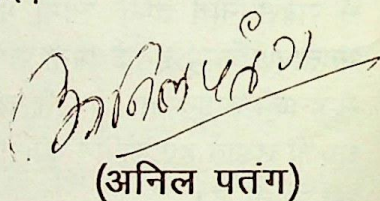 अनिल पतंग
(अनिल पतंग)